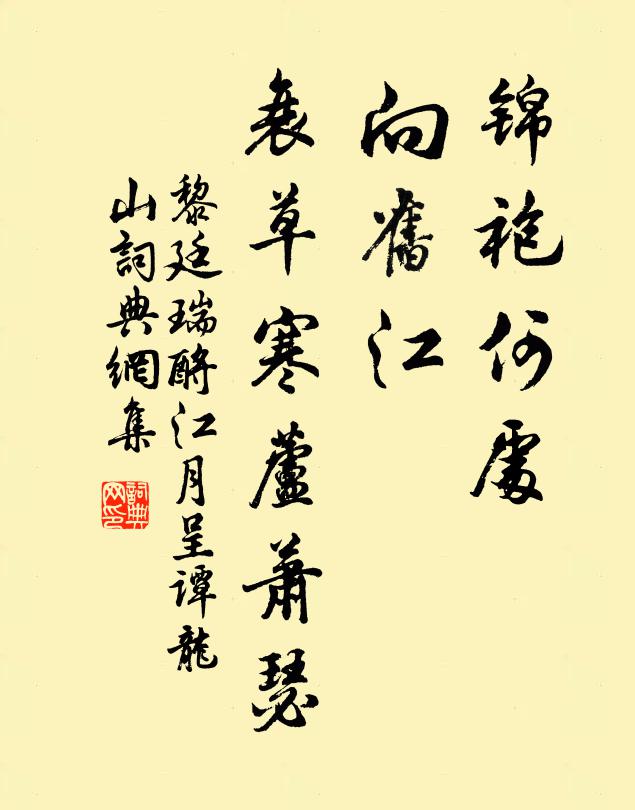 锦袍何處
向舊江
衰草寒蘆蕭瑟
黎廷瑞酹江月呈谭龍
山詞典網集
詞典
网印